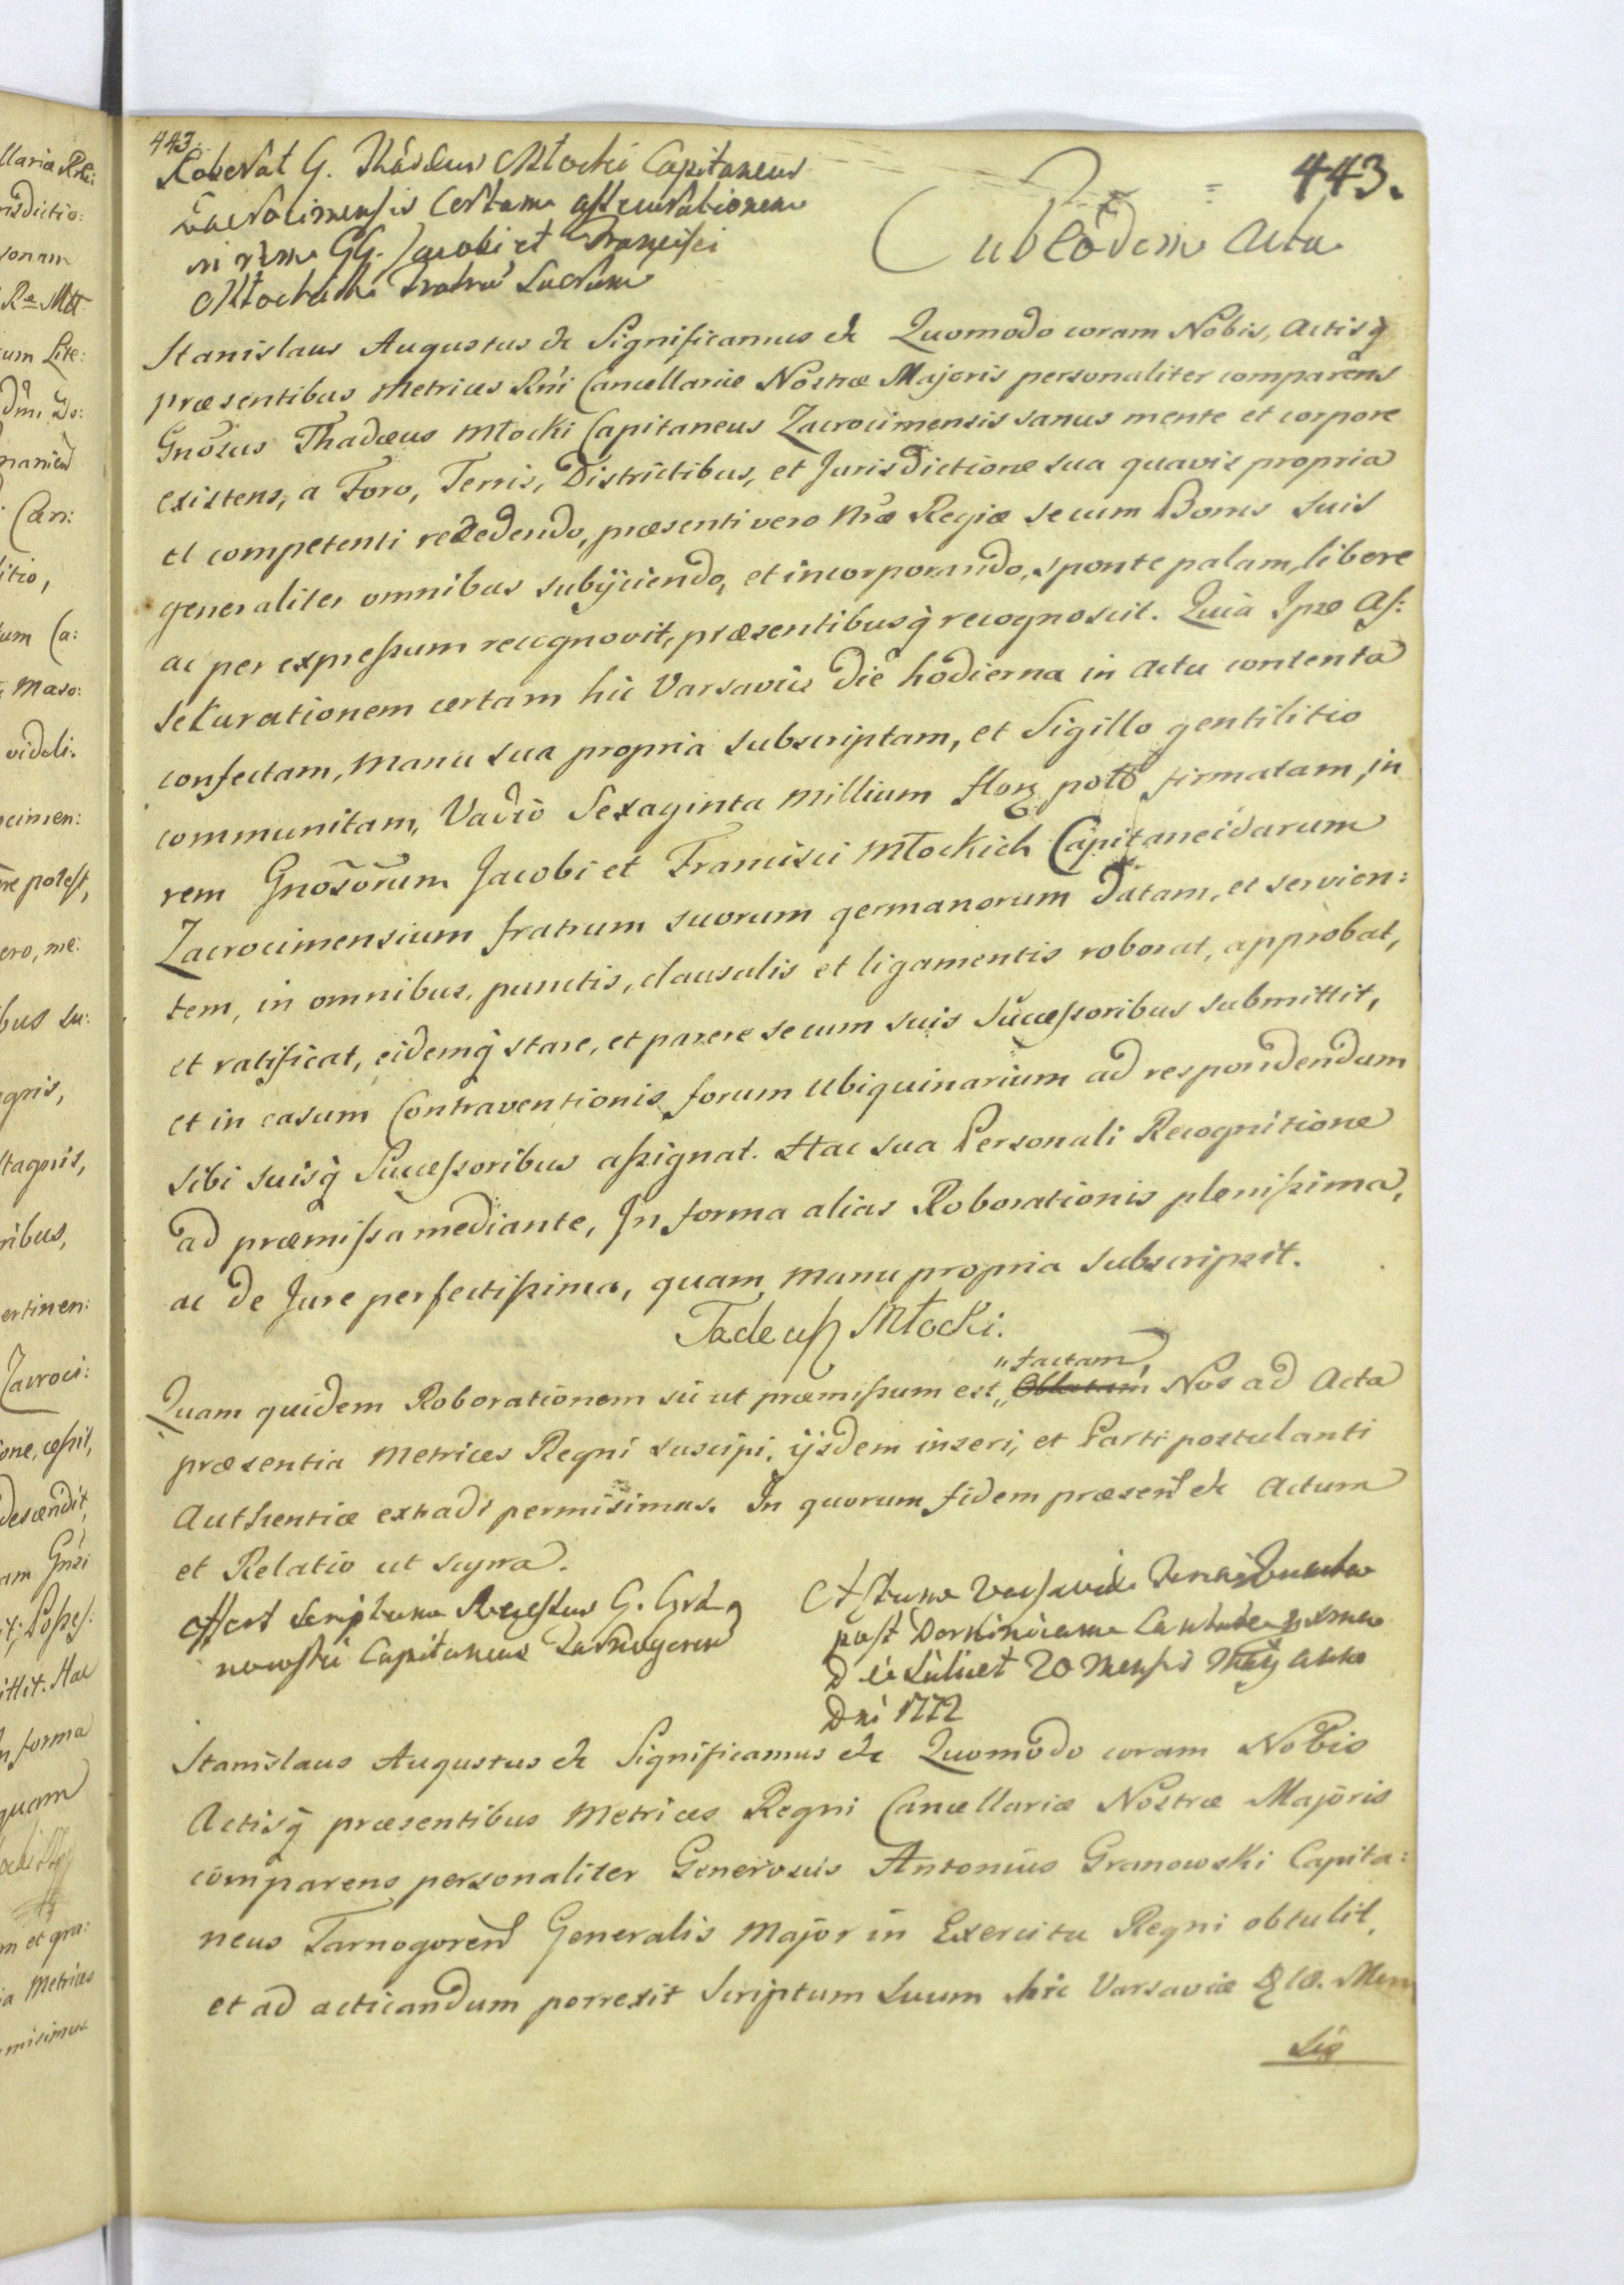 443.
443.
Roborat G. Thadeus Młocki Capitaneus
Zacrocimensis Certam assecurationem
in rem GG. Jacobi et Francisci
Młockich Fratrũ Suorum
Sub eodem Actu
Stanislaus Augustus &c Significamus &c Quomodo coram Nobis, Actisq̃
præsentibus Metrices Rñi Cancellariæ Nostræ Majoris personaliter comparens
Gnõsus Thadæus Młocki Capitaneus Zacrocimensis sanus mente et corpore
existens, a Foro, Terris, Districtibus, et Jurisdictione sua quavis propria
et competenti recedendo, præsenti vero Nræ Regiæ se cum Bonis suis
generaliter omnibus subijciendo, et incorporando, sponte palam, libere
ac per expreſsum recognovit, præsentibusq̃ recognoscit. Quia Ipse Aſ:
sekurationem certam hic Varsaviæ die hodierna in Actu contenta
confectam, Manu sua propria subscriptam, et Sigillo gentilitio
communitam, Vadio Sexaginta Millium flor̃ polõ firmatam, in
rem Gnosõrum Jacobi et Francisci Młockich Capitaneidarum
Zacrocimensium fratrum suorum germanorum Datam, et servien:
tem, in omnibus, punctis, clausulis et ligamentis roborat, approbat,
et ratificat, eidemq̃ stare, et parere se cum suis Succeſsoribus submittit,
et in casum Contraventionis forum Ubiquinarium ad respondendum
sibi suisq̃ Succeſsoribus aſsignat. Hac sua Personali Recognitione
ad præmiſsa mediante, In forma alias Roborationis pleniſsima,
ac de Jure perfectiſsima, quam Manu propria subscripsit.
Tadeuſz Młocki.
"factam,
Quam quidem Roborationem sic ut præmiſsum est,, Oblatam Nos ad Acta
præsentia Metrices Regni suscipi, ijsdem inseri, et Parti postulanti
Authenticæ extradi permisimus. In quorum fidem præsen̄t &c Actum
et Relatio ut supra.
Offert Scriptum G. Gra
nowski Capitaneus Tarnogoren
Actum Varsaviæ Feria Quarta
post Dominicam Cantate proxima
die scilicet 20 Mensis Maij Anno
Dni 1772
Stanislaus Augustus &c Significamus &c Quomodo coram Nobis
Actisq̃ præsentibus Metrices Regni Cancellariæ Nostræ Majoris
comparens personaliter Generosus Antonius Granowski Capita:
neus Tarnogoren̄ Generalis Major in Exercitu Regni obtulit,
et ad acticandum porrexit Scriptum Suum hic Varsaviæ Men
sis